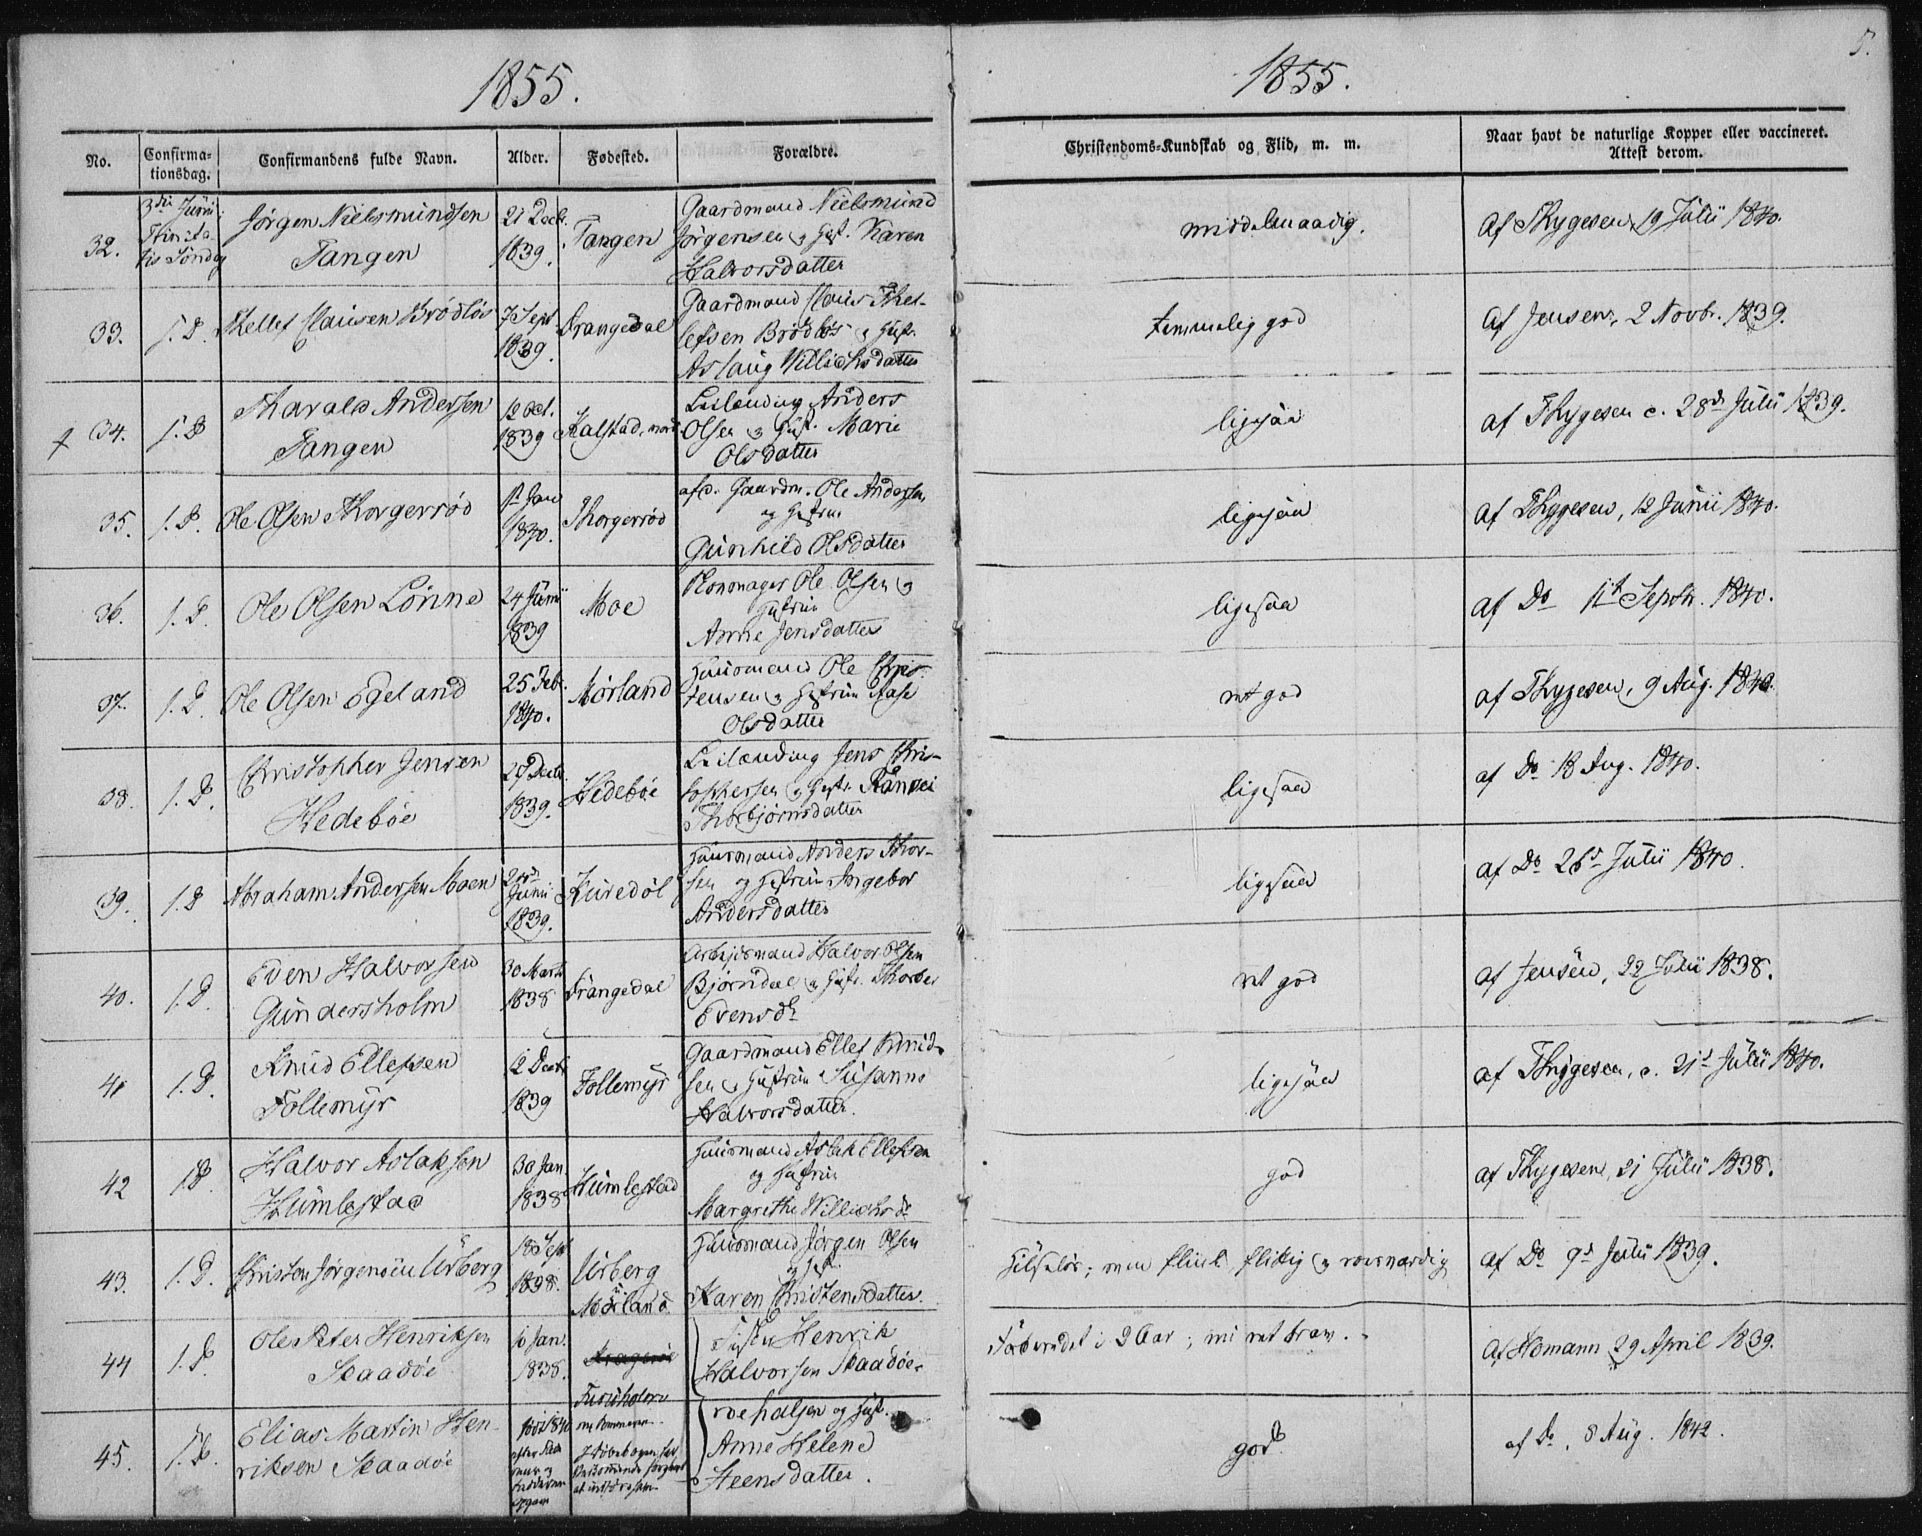 1855.
1855.
5.
No.
Confirma-
tionsdag.
Confirmandens fulde Navn.
Alder.
Fødested.
Forældre.
Christendoms-Kundskab og Flid, m. m.
Naar havt de naturlige Kopper eller vaccineret.
Attest derom.
32.
3die Juni
Trinita-
tis Søndag
Jørgen Nielsmundsen
Tangen
21 Decbr.
1839.
Tangen
Gaardmand Nielsmund
Jørgensen og Hust. Karen
Halvorsdatter
middelmaadig.
af Thygesen, 19 Julii 1840.
33.
s. D.
Thellef Clausen Brødløs
7 Sept
1839.
Drangedal
Gaardmand Claus Thel-
lefsen Brødløs og Hustr.
Aslaug Willichsdatter
temmelig god
af Jensen, 2 Novbr. 1839.
+ 34.
s. D
Tharald Andersen
Tangen
12 Oct.
1839
Kalstad, nord.
Leilænding Anders
Olsen og Hust. Marie
Olsdatter
ligesaa
af Thygesen d. 28de Julii 1839.
35.
s. D.
Ole Olsen Thorgersrød
1ste Jan
1840.
Thorgersrød
afd. Gaardm. Ole Andersen
og Hustrue
Gunhild Olsdatter
ligesaa
af Thygesen, 12 Junii 1840.
36.
s. D.
Ole Olsen Lønne
24 Junii
1839
Moe
Ole Olsen og
Hustrue
Anne Jensdatter
ligesaa
af Do 11te Septbr. 1840.
37.
s. D.
Ole Olsen Egeland
25 Febr.
1840.
Mørland
Huusmand Ole Chris-
tensen og Hustrue Aase
Olsdatter
ret god
af Thygesen, 9 Aug. 1840.
38.
s. D.
Christopher Jensen
Hedebøe
27 Decbr.
1839.
Hedebøe
Leilænding Jens Chris-
tophersen og Hustr. Ranvei
Thorbjørnsdatter
ligesaa
af Do 18 Aug. 1840.
39.
s. D
Abraham Andersen Moen
Junii
1839.
Kuredøl
Huusmand Anders Thor-
sen og Hustrue Ingebor
Andersdatter
ligesaa
af Do 26de Julii 1840.
40.
s. D
Even Halvorsen
Gundersholm
30 Marts
1838
Drangedal
Arbejdsmand Halvor Olsen
Bjørndal og Hustr. Thorber
Evensdr
ret god
af Jensen, 22 Julii 1838.
41
s. D.
Knud Ellefsen
Follemyr
12 Decbr
1839
Follemyr
Gaardmand Ellef Knud-
sen og Hustrue Susanne
Halvorsdatter.
ligesaa
af Thygesen, d. 21de Julii 1840.
42
s. D.
Halvor Aslaksen
Humlestad
30 Jan
1838
Humlestad
Huusmand Aslak Ellefsen
og Hustrue
Margrethe Willichsdr
god
af Thygesen, 21 Julii 1838.
43.
s. D.
Christen Jørgensen Urberg
18 Sept
1838.
Urberg
Mørland
Huusmand Jørgen Olsen
og Hust.
Karen Christensdatter.
men flink, flittig og roesværdig
af Do 9de Julii 1839.
44
s. D.
Ole Peter Henriksen
Skaadøe
10 Jan.
1838.
Kragerøe
Henrik
Halvorsen Skaadøe-
Forberedet i 2 Aar; ret brav.
af Homann 29 April 1839.
45.
s. D.
Elias Martin Hen-
riksen Skaadøe
roehalsen og Hust.
Anne Helene
Steensdatter.
god
af Do, 8 Aug. 1842.